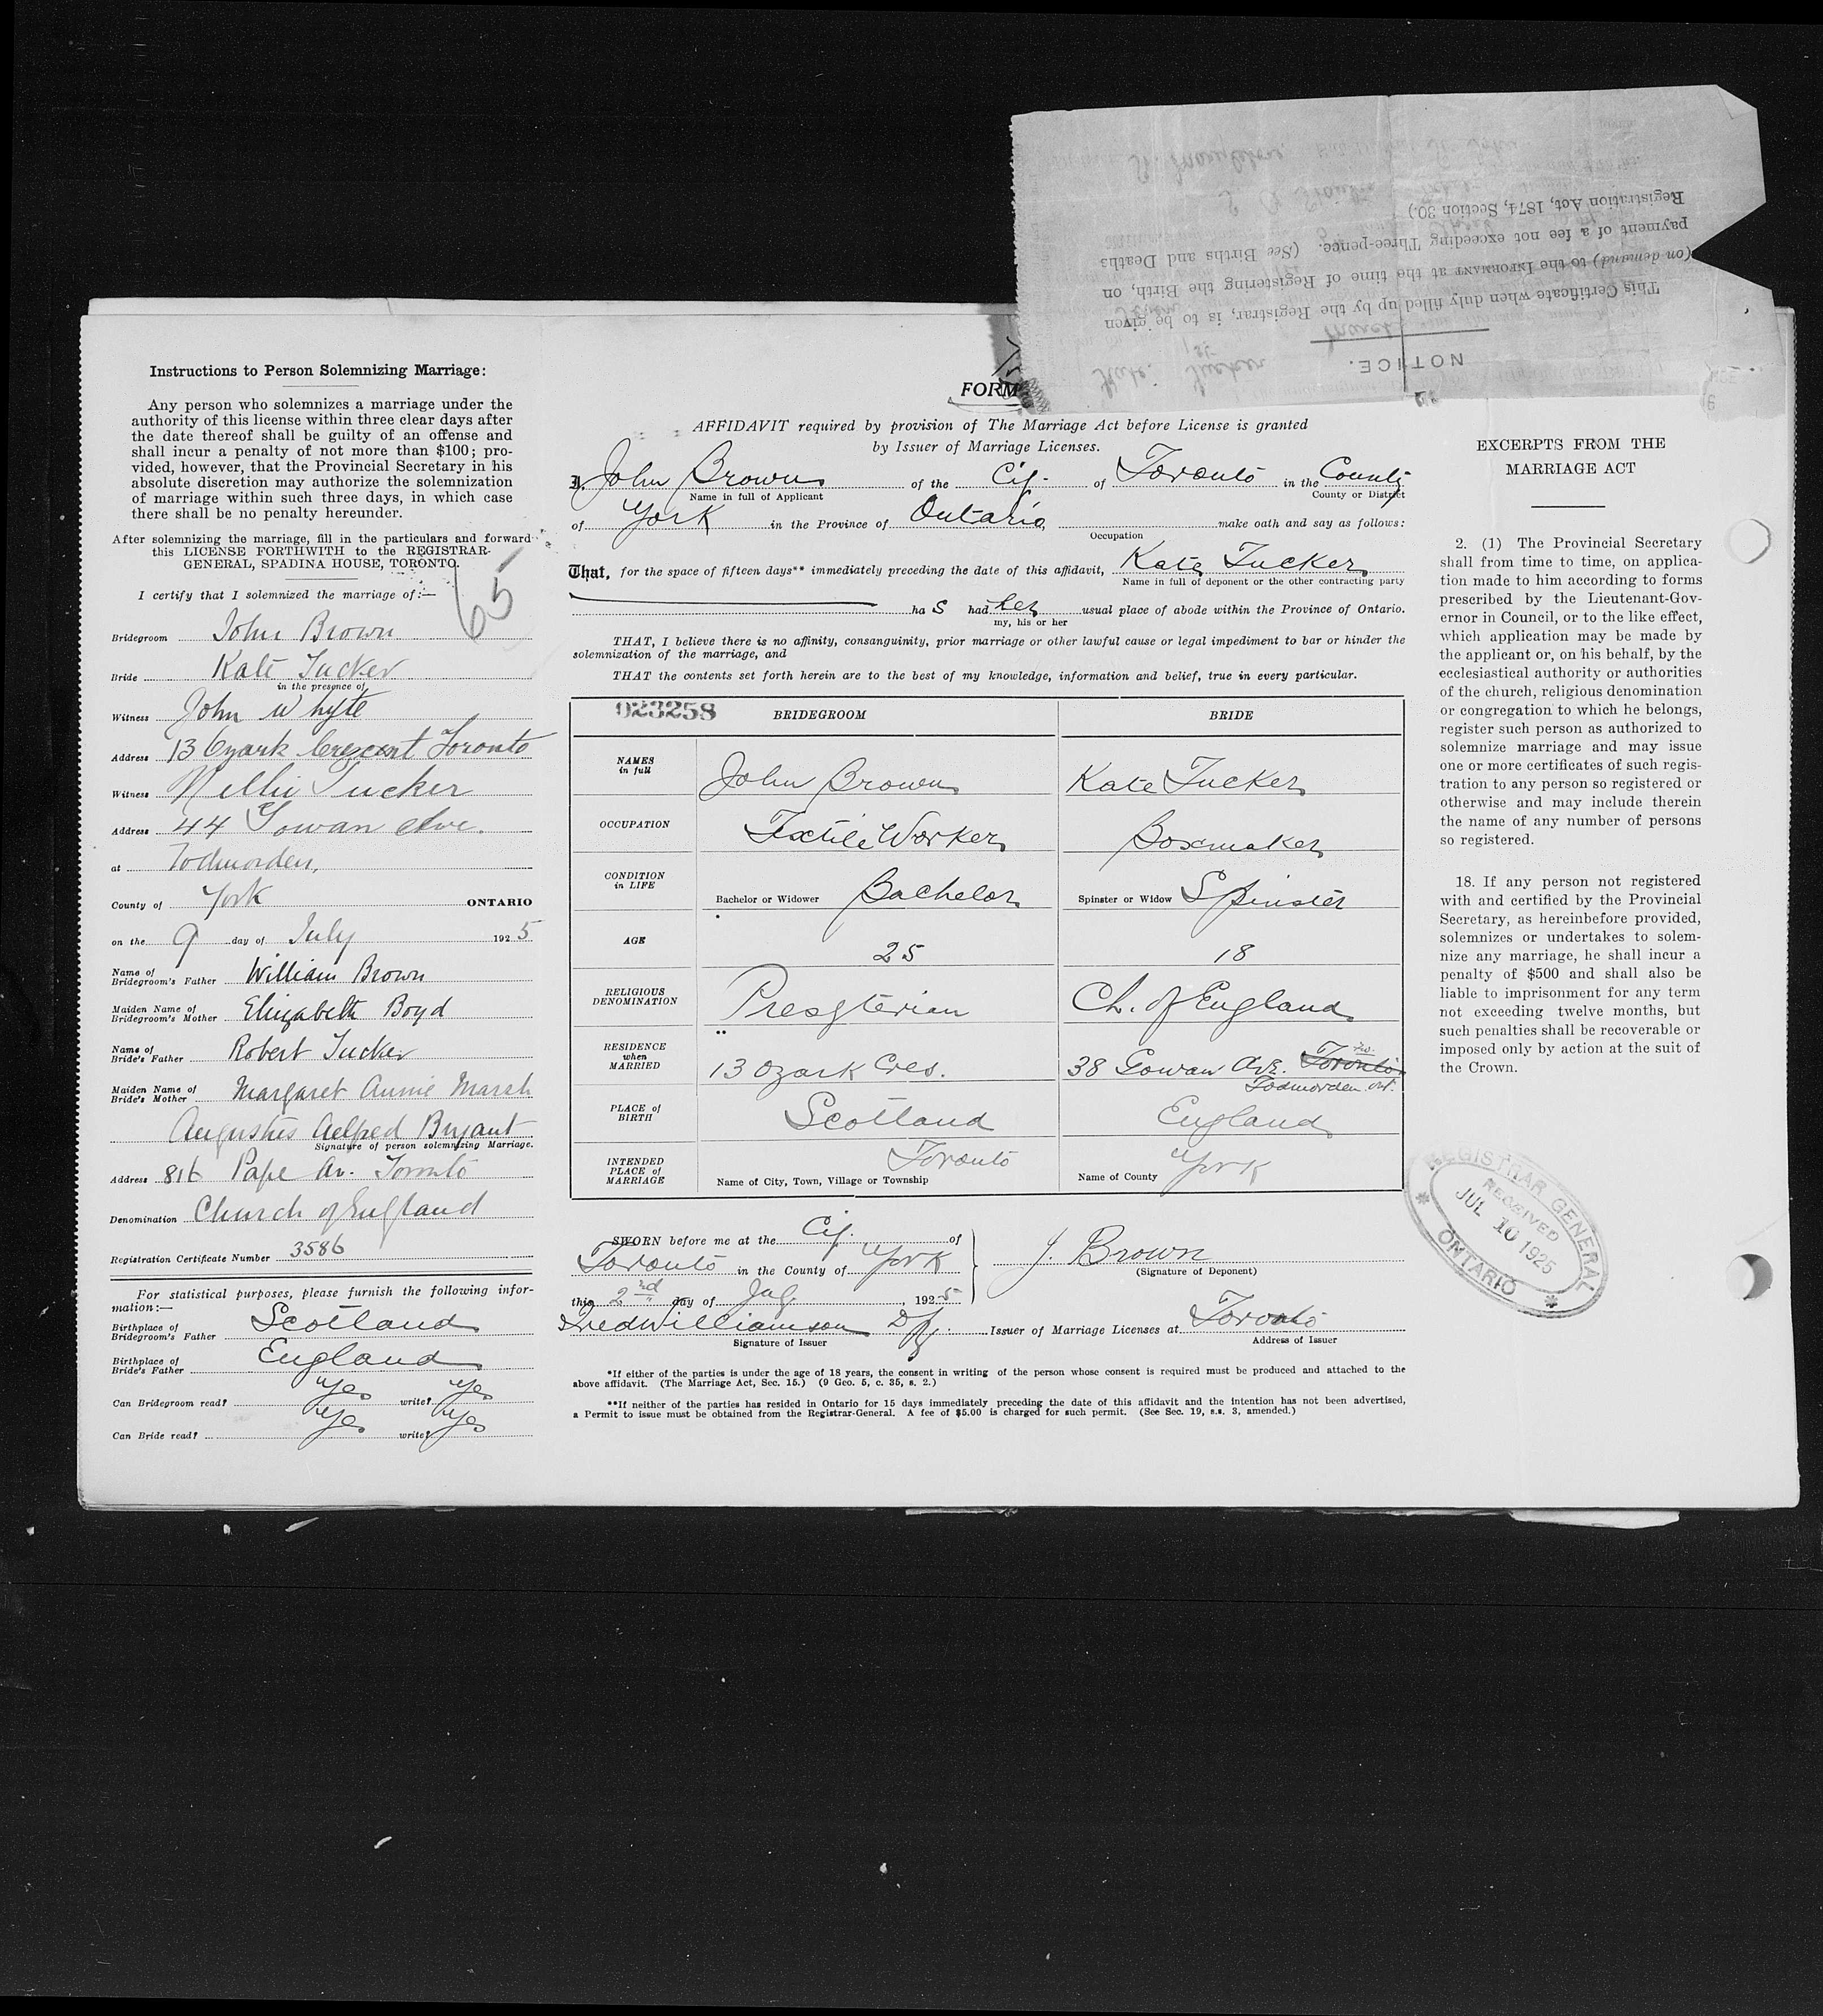 Instructions to Person Solemnizing Marriage:
Any person who solemnizes a marriage under the
authority of this license within three clear days after
the date thereof shall be guilty of an offense and
shall incur a penalty of not more than $100; pro-
vided, however, that the Provincial Secretary in his
absolute discretion may authorize the solemnization
of marriage within such three days, in which case
there shall be no penalty hereunder.
After solemnizing the marriage, fill in the particulars and forward
this LICENSE FORTHWITH to the REGISTRAR-
GENERAL, SPADINA HOUSE, TORONTO.
65
I certify that I solemnized the marriage of:—
Bridegroom John Brown
Bride Kate Tucker
in the presence of
Witness John Whyte
Address 13 Ozark Crescent Toronto
Witness Nellie Tucker
Address 44 Gowan Ave.
at Todmorden,
County of York ONTARIO
on the 9 day of July 1925
Name of Bridegroom's Father William Brown
Maiden Name of Bridegroom's Mother Elizabeth Boyd
Name of Bride's Father Robert Tucker
Maiden Name of Bride's Mother Margaret Annie Marsh
Augustus Aelfred Bryant
Signature of person solemnizing Marriage.
Address 816 Pape Av. Toronto
Denomination Church of England
Registration Certificate Number 3586
For statistical purposes, please furnish the following infor-
mation:—
Birthplace of Bridegroom's Father Scotland
Birthplace of Bride's Father England
Can Bridegroom read? Yes write? Yes
Can Bride read? Yes write? Yes
NOTICE.
This Certificate when duly filled up by the Registrar, is to be given
(on demand) to the INFORMANT at the time of Registering the Birth, on
payment of a fee not exceeding Three-pence. (See Births and Deaths
Registration Act, 1874, Section 30.)
Kate Tucker
FORM
AFFIDAVIT required by provision of The Marriage Act before License is granted
by Issuer of Marriage Licenses.
I, John Brown of the City of Toronto in the County
Name in full of Applicant County or District
of York in the Province of Ontario, make oath and say as follows:
Occupation
That, for the space of fifteen days** immediately preceding the date of this affidavit, Kate Tucker
Name in full of deponent or the other contracting party
has had her usual place of abode within the Province of Ontario.
my, his or her
THAT, I believe there is no affinity, consanguinity, prior marriage or other lawful cause or legal impediment to bar or hinder the
solemnization of the marriage, and
THAT the contents set forth herein are to the best of my knowledge, information and belief, true in every particular.
023258 BRIDEGROOM BRIDE
NAMES in full John Brown Kate Tucker
OCCUPATION Textile Worker Boxmaker
CONDITION in LIFE Bachelor or Widower Bachelor Spinster or Widow Spinster
AGE 25 18
RELIGIOUS DENOMINATION Presbyterian Ch. of England
RESIDENCE when MARRIED 13 Ozark Cres. 38 Gowan Ave. Toronto
Todmorden ont.
PLACE of BIRTH Scotland England
INTENDED PLACE of MARRIAGE Toronto York
Name of City, Town, Village or Township Name of County
SWORN before me at the City of
Toronto in the County of York
this 2nd day of July, 1925
J. Brown
(Signature of Deponent)
Fred Williamson Issuer of Marriage Licenses at Toronto
Signature of Issuer Address of Issuer
*If either of the parties is under the age of 18 years, the consent in writing of the person whose consent is required must be produced and attached to the
above affidavit. (The Marriage Act, Sec. 15.) (9 Geo. 5, c. 35, s. 2.)
**If neither of the parties has resided in Ontario for 15 days immediately preceding the date of this affidavit and the intention has not been advertised,
a Permit to issue must be obtained from the Registrar-General. A fee of $5.00 is charged for such permit. (See Sec. 19, s.s. 3, amended.)
EXCERPTS FROM THE
MARRIAGE ACT
2. (1) The Provincial Secretary
shall from time to time, on applica-
tion made to him according to forms
prescribed by the Lieutenant-Gov-
ernor in Council, or to the like effect,
which application may be made by
the applicant or, on his behalf, by the
ecclesiastical authority or authorities
of the church, religious denomination
or congregation to which he belongs,
register such person as authorized to
solemnize marriage and may issue
one or more certificates of such regis-
tration to any person so registered or
otherwise and may include therein
the name of any number of persons
so registered.
18. If any person not registered
with and certified by the Provincial
Secretary, as hereinbefore provided,
solemnizes or undertakes to solem-
nize any marriage, he shall incur a
penalty of $500 and shall also be
liable to imprisonment for any term
not exceeding twelve months, but
such penalties shall be recoverable or
imposed only by action at the suit of
the Crown.
REGISTRAR GENERAL
RECEIVED
JUL 10 1925
ONTARIO